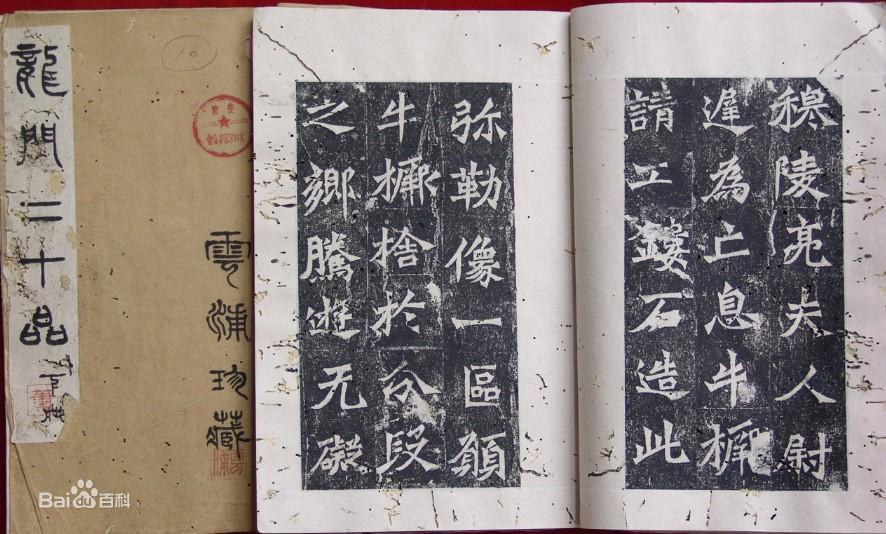 龍門二十品
雲浦珍藏
10
穆陵亮夫人尉
遲為亡息牛橛
請工鏤石造此
弥勒像一區願
牛橛捨於分段
之鄉騰遊无礙
Bai百科